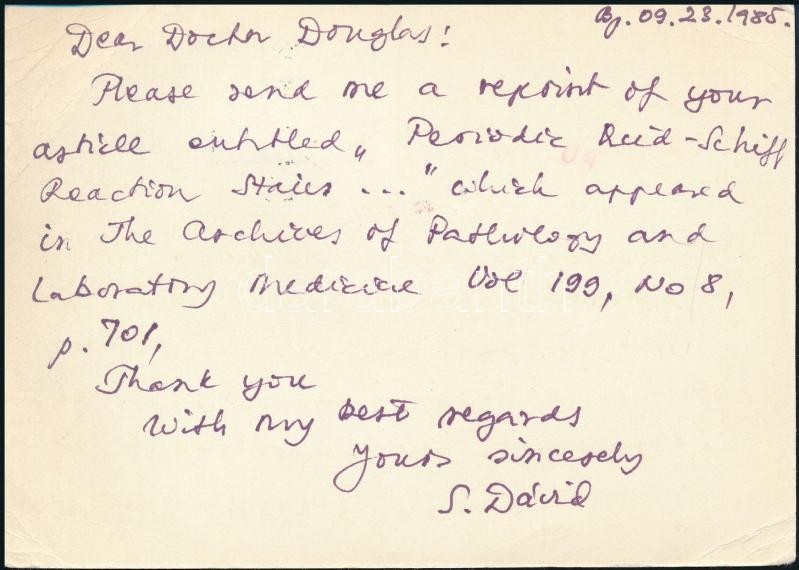 Bp. 09.23.1985.
Dear Doctor Douglas!
Please send me a reprint of your
article entitled „ Periodic Acid-Schiff
Reaction Stains ..." which appeared
in The Archives of Pathology and
Laboratory Medicine Vol 199, No 8,
p. 701,
Thank you
With my best regards
Yours sincerely
S. Dávid
U4
darabanth